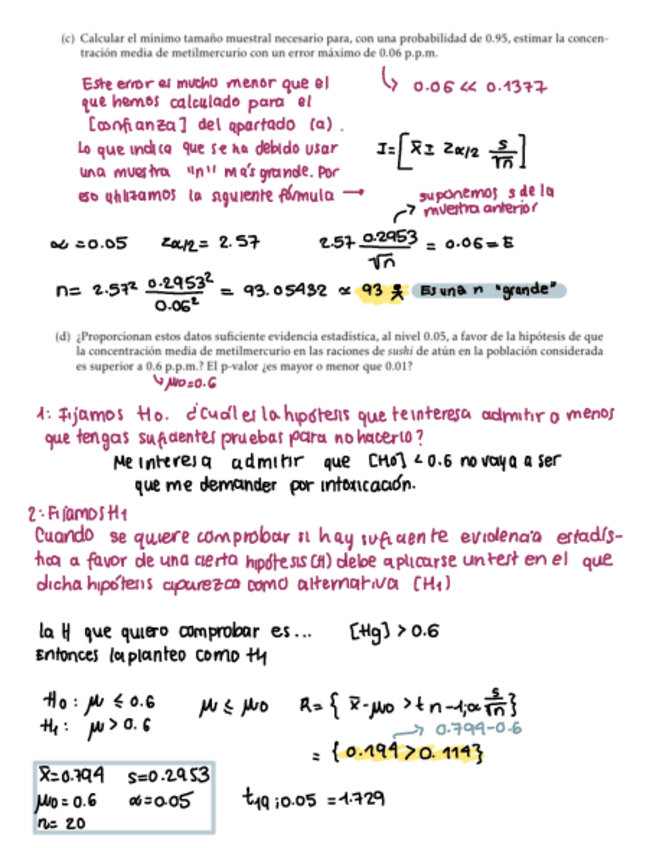 (c) Calcular el mínimo tamaño muestral necesario para, con una probabilidad de 0.95, estimar la concen-
tración media de metilmercurio con un error máximo de 0.06 p.p.m.
Este error es mucho menor que el
que hemos calculado para el
[confianza] del apartado (a).
Lo que indica que se ha debido usar
una muestra "n" más grande. Por
eso utilizamos la siguiente fórmula →
↳ 0.06 << 0.1377
I = [x̄ ± zα/2 s/√n]
suponemos s de la
muestra anterior
α = 0.05 zα/2 = 2.57 2.57 0.2953/√n = 0.06 = E
n = 2.57² 0.2953²/0.06² = 93.05432 ≈ 93 Es una n "grande"
(d) ¿Proporcionan estos datos suficiente evidencia estadística, al nivel 0.05, a favor de la hipótesis de que
la concentración media de metilmercurio en las raciones de sushi de atún en la población considerada
es superior a 0.6 p.p.m.? El p-valor ¿es mayor o menor que 0.01?
↳ μ0=0.6
1: Fijamos H0. ¿Cuál es la hipótesis que te interesa admitir a menos
que tengas suficientes pruebas para no hacerlo?
Me interesa admitir que [Hg] < 0.6 no vaya a ser
que me demanden por intoxicación.
2: Fijamos H1
Cuando se quiere comprobar si hay suficiente evidencia estadís-
tica a favor de una cierta hipótesis (H) debe aplicarse un test en el que
dicha hipótesis aparezca como alternativa (H1)
la H que quiero comprobar es... [Hg] > 0.6
Entonces la planteo como H1
H0: μ ≤ 0.6 μ ≤ μ0 R = { x̄-μ0 > t n-1;α s/√n}
H1: μ > 0.6 → 0.794-0.6
= {0.194 > 0.114}
x̄=0.794 s=0.2953
μ0 = 0.6 α=0.05 t19;0.05 = 1.729
n= 20